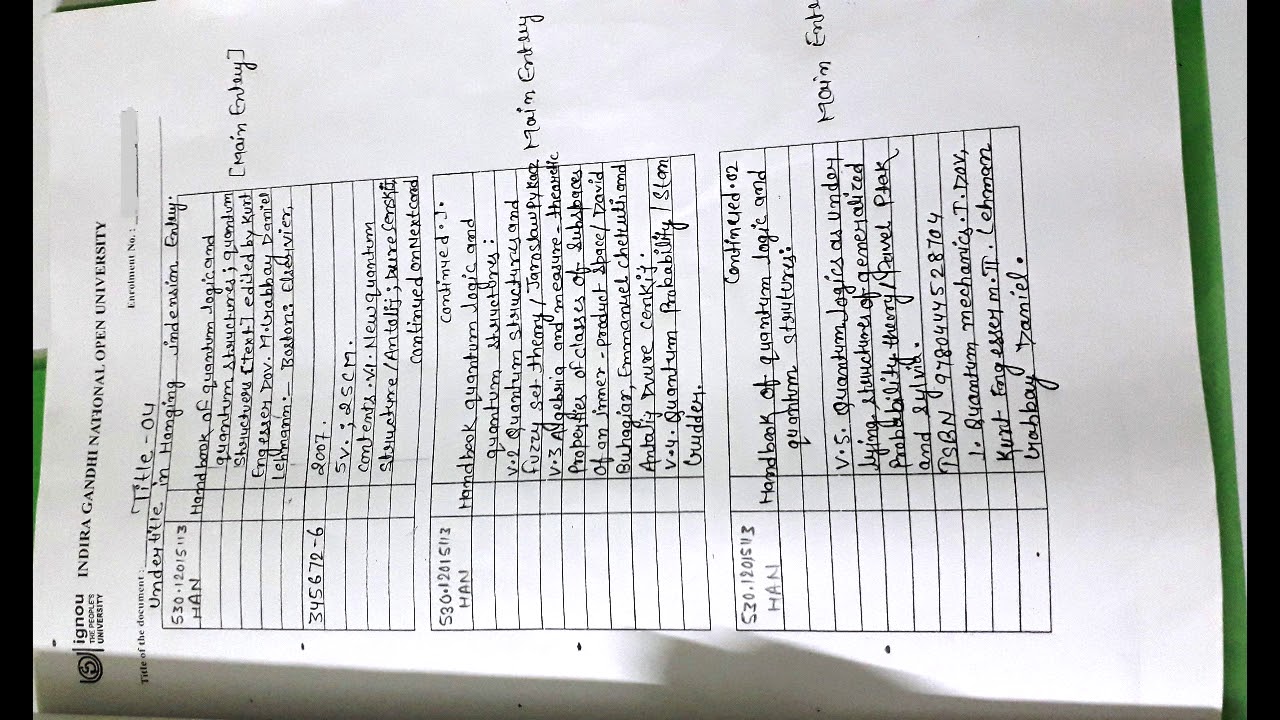 ignou
THE PEOPLE'S
UNIVERSITY
INDIRA GANDHI NATIONAL OPEN UNIVERSITY
Enrolment No.:
Title of the document: Title-04
under title in Hanging indension Entry.
530.12015113
HAN
Handbook of quantum logic and
quantum structures; quantum
Structures [text] edited by Kurt
Engesser Dov. M. Daniel
Lehmann:— Boston: Elsevier,
345672-6 2007.
5v.; 25CM.
Contents. V.1. New quantum
Structure /Antalij; bure
continued on Next card
[Main Entry]
530.12015113
HAN
continued.1.
Handbook quantum logic and
quantum structures:
V.2 Quantum structures and
fuzzy set theory/ Jaroslaw Pykacz
V.3 Algebria and measure-theoretic
Properties of classes of subspaces
of an inner-product space/ David
Buhagiar, Emmanuel chetuth and
Antalij Dvure cenkij.
V.4. Quantum Probability/ Stan
Gudder.
Main Entry
530.12015113
HAN
Continued.02
Handbook of quantum logic and
quantum strutures:
V.5. Quantum logics as under
lying structures of generalized
Probability theory/ Pavel Ptak
and Sylvia.
ISBN 9780444528704
1. Quantum mechanics. I. DOV,
Kunt Engesser M. II. Lehman
Daniel.
Main Ent